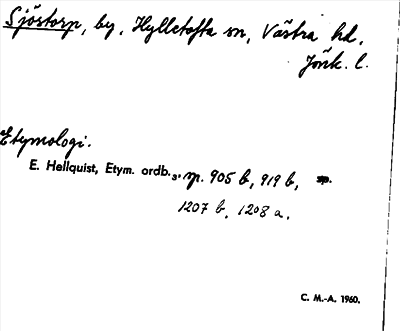 Sjöstorp, by, Hylletofta sn, Västra hd,
Jönk. l.
Etymologi.
E. Hellquist, Etym. ordb.3, sp. 905 b, 919 b,
1207 b, 1208 a.
C. M.-A. 1960.